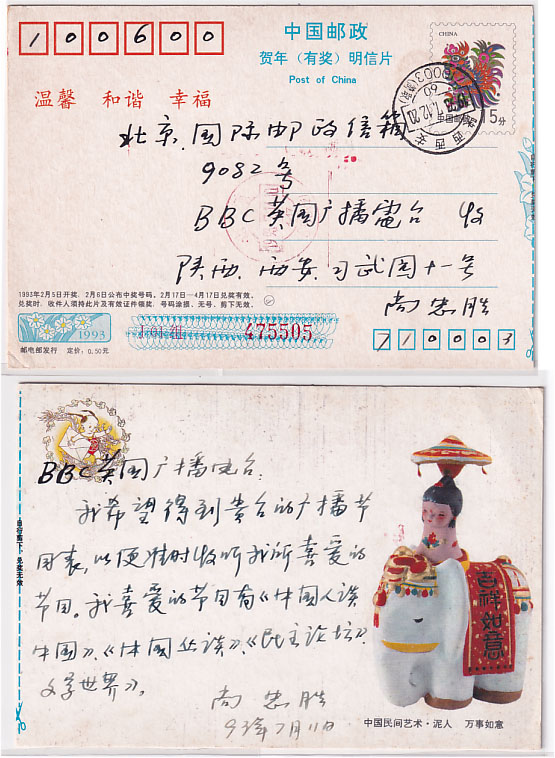 100600
中国邮政
贺年（有奖）明信片
Post of China
CHINA
中国邮政
15分
温馨 和谐 幸福
北京国际邮政信箱
9082号
BBC英国广播電台 收
陕西西安习武园十一号
尚忠胜
1993年2月5日开奖，2月6日公布中奖号码，2月17日—4月17日兑奖有效。
兑奖时，收件人须持此片及有效证件领奖。号码涂损、无号、剪下无效。
1993
I 01 组 475505
邮电部发行 定价：0.50元
710003
BBC英国广播电台：
我希望得到贵台的广播节
目表，以便准时收听我所喜爱的
节目。我喜爱的节目有《中国人谈
中国》、《中国丛谈》、《民主论坛》、
文学世界》。
尚忠胜
93年7月11日
自行剪下 兑奖无效
吉祥如意
中国民间艺术·泥人 万事如意